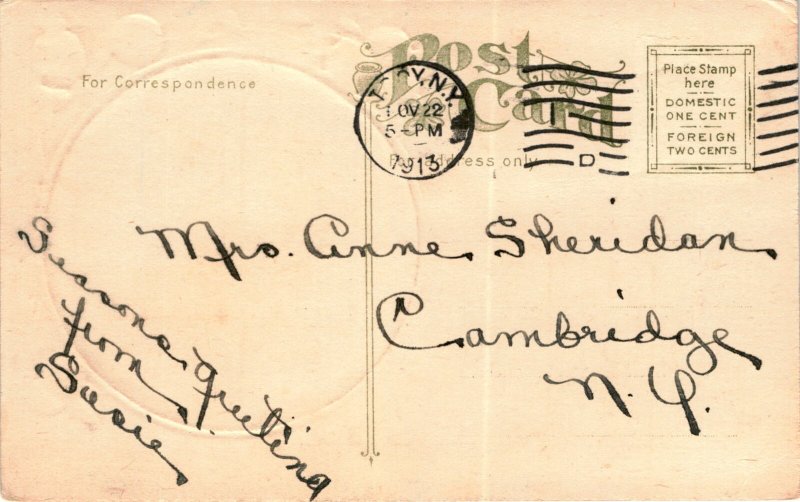 For Correspondence
Post Card
TROY, N.Y.
NOV 22
5-PM
1913
D
For address only
Place Stamp
here
DOMESTIC
ONE CENT
FOREIGN
TWO CENTS
Mrs. Anne Sheridan
Cambridge
N.Y.
Seasons greeting
from
Susie